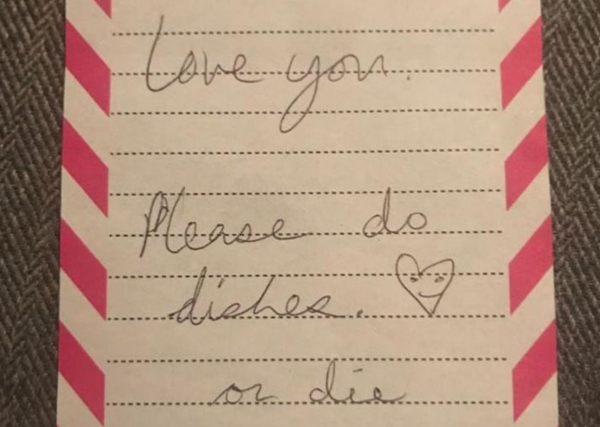 Love you.
Please do
dishes.
or die